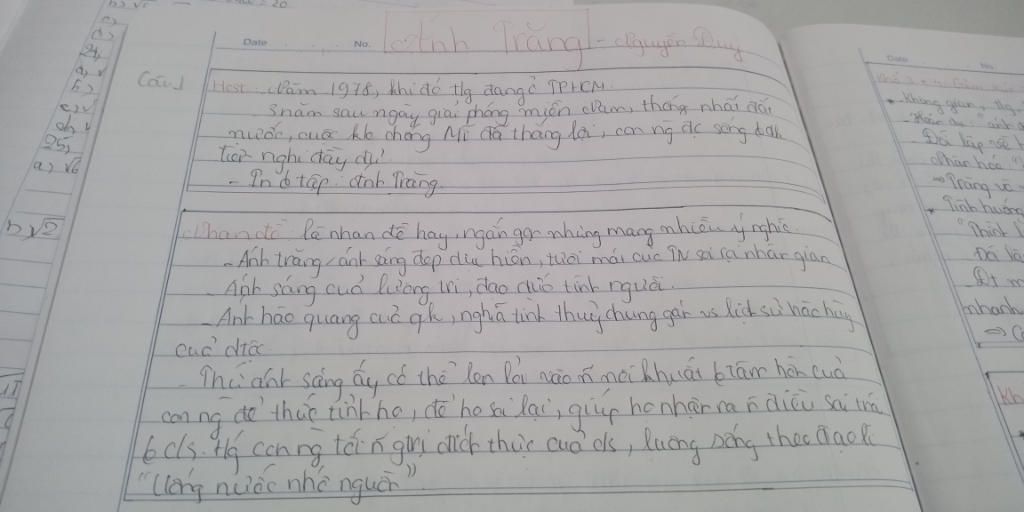 Date No. Ánh Trăng - Nguyễn Duy
Câu 1
Hcst: Năm 1978, khi đó t/g đang ở TPHCM
3 năm sau ngày giải phóng miền Nam, thống nhất đất
nước, cuộc k/c chống Mĩ đã thắng lợi, con ng đc sống
tiện nghi đầy đủ.
- In ở tập: Ánh Trăng.
Nhan đề là nhan đề hay, ngắn gọn nhưng mang nhiều ý nghĩa.
- Ánh trăng, ánh sáng đẹp dịu hiền, tươi mát của TN soi rọi nhân gian
- Ánh sáng của lương tri, đạo đức tình người.
- Ánh hào quang của qk, nghĩa tình thuỷ chung gắn vs lịch sử hào hùng
của dtộc.
- Thứ ánh sáng ấy có thể len lỏi vào n mọi khuất tâm hồn của
con ng để thức tỉnh họ, để họ soi lại, giúp họ nhận ra n điều sai trái
c/s. Hg con ng tới n giá trị đích thực của c/s, luông sống theo đạo lí
"Uống nước nhớ nguồn".
Date No
Không gian, t/g
Đã lặp
Nhân hóa
Trăng
Tình huống
"Thình
nhanh
Kh
a, √6
b, √2